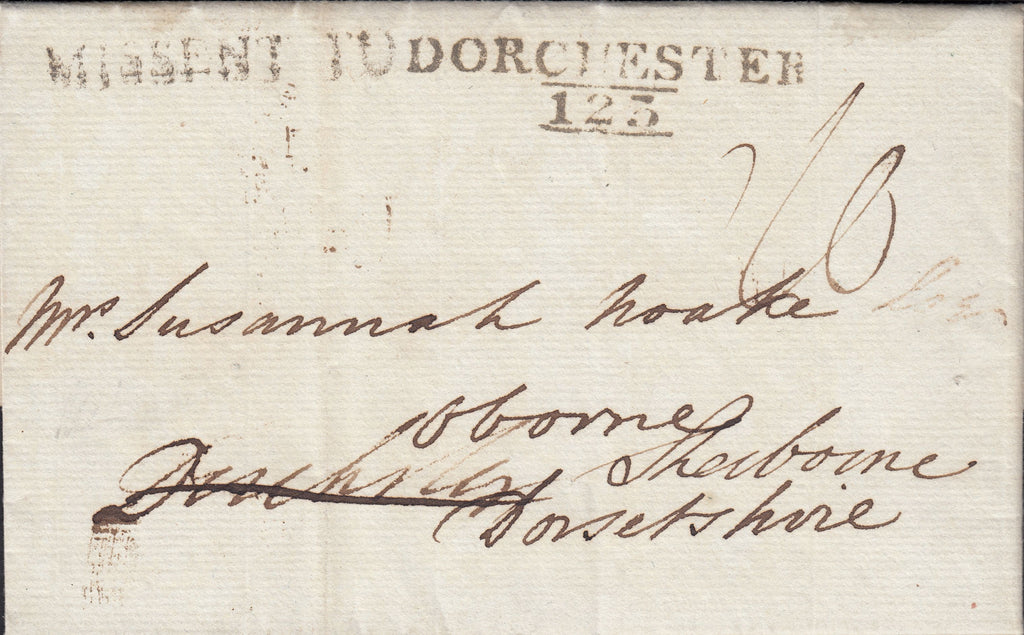 MISSENT TO DORCHESTER
123
Mrs. Susannah Noake
Oborne
Sherborne
Dorsetshire